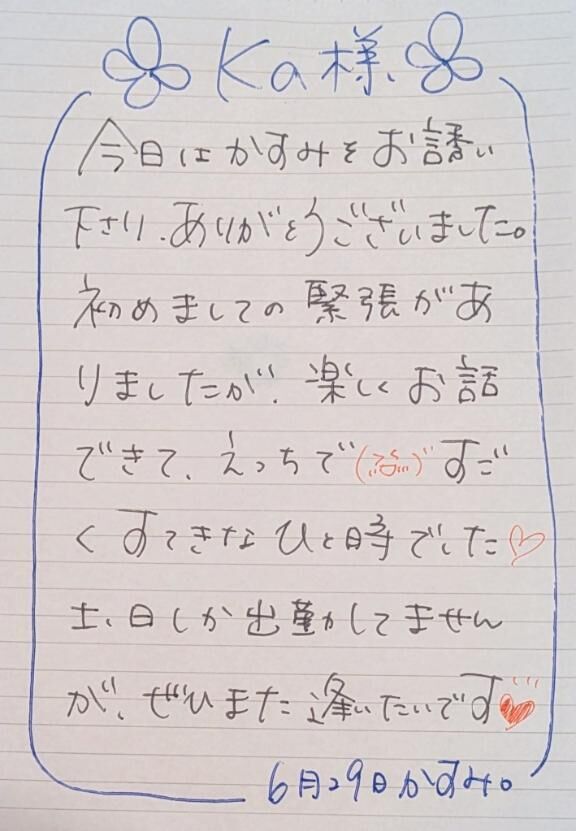 Ka様
今日はかすみをお誘い
下さり、ありがとうございました。
初めましての緊張があ
りましたが、楽しくお話
できて、えっちで すご
くすてきなひと時でした♡
土、日しか出勤してません
が、ぜひまた逢いたいです♥
6月29日かすみ。